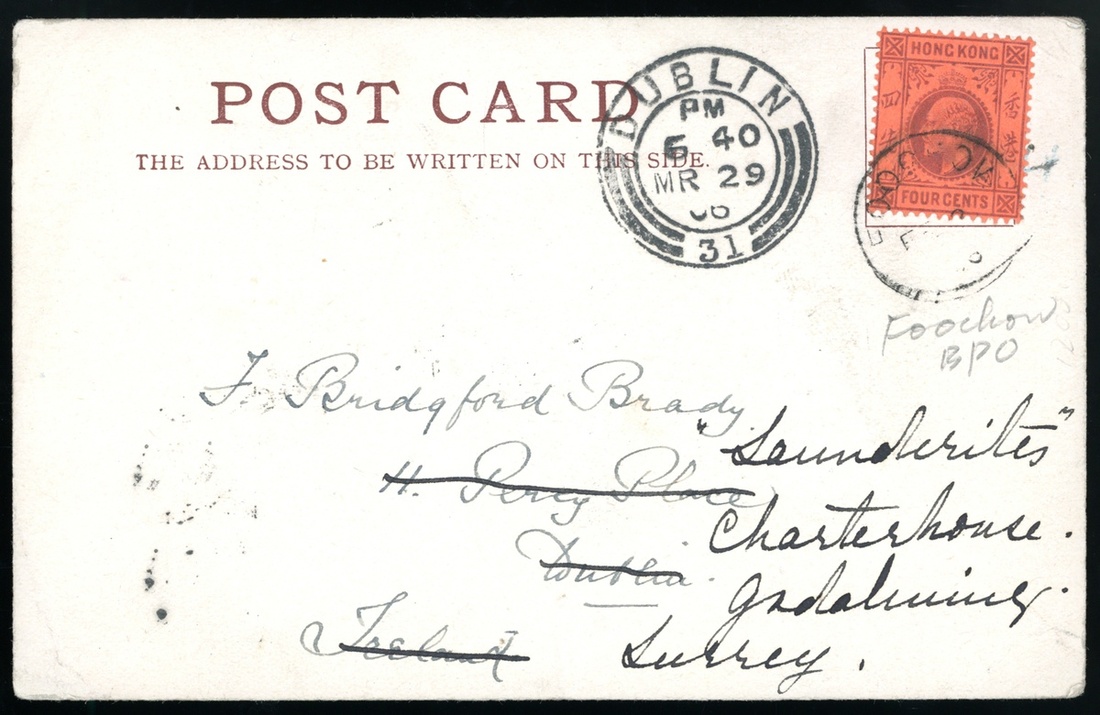 POST CARD
THE ADDRESS TO BE WRITTEN ON THIS SIDE.
DUBLIN
PM
6 40
MR 29
06
31
HONG KONG
四
香港
FOUR CENTS
Foochow
BPO
F. Bridgford Brady
"Saunderites"
11. Percy Place
Charterhouse.
Dublin.
Godalming.
Ireland
Surrey.